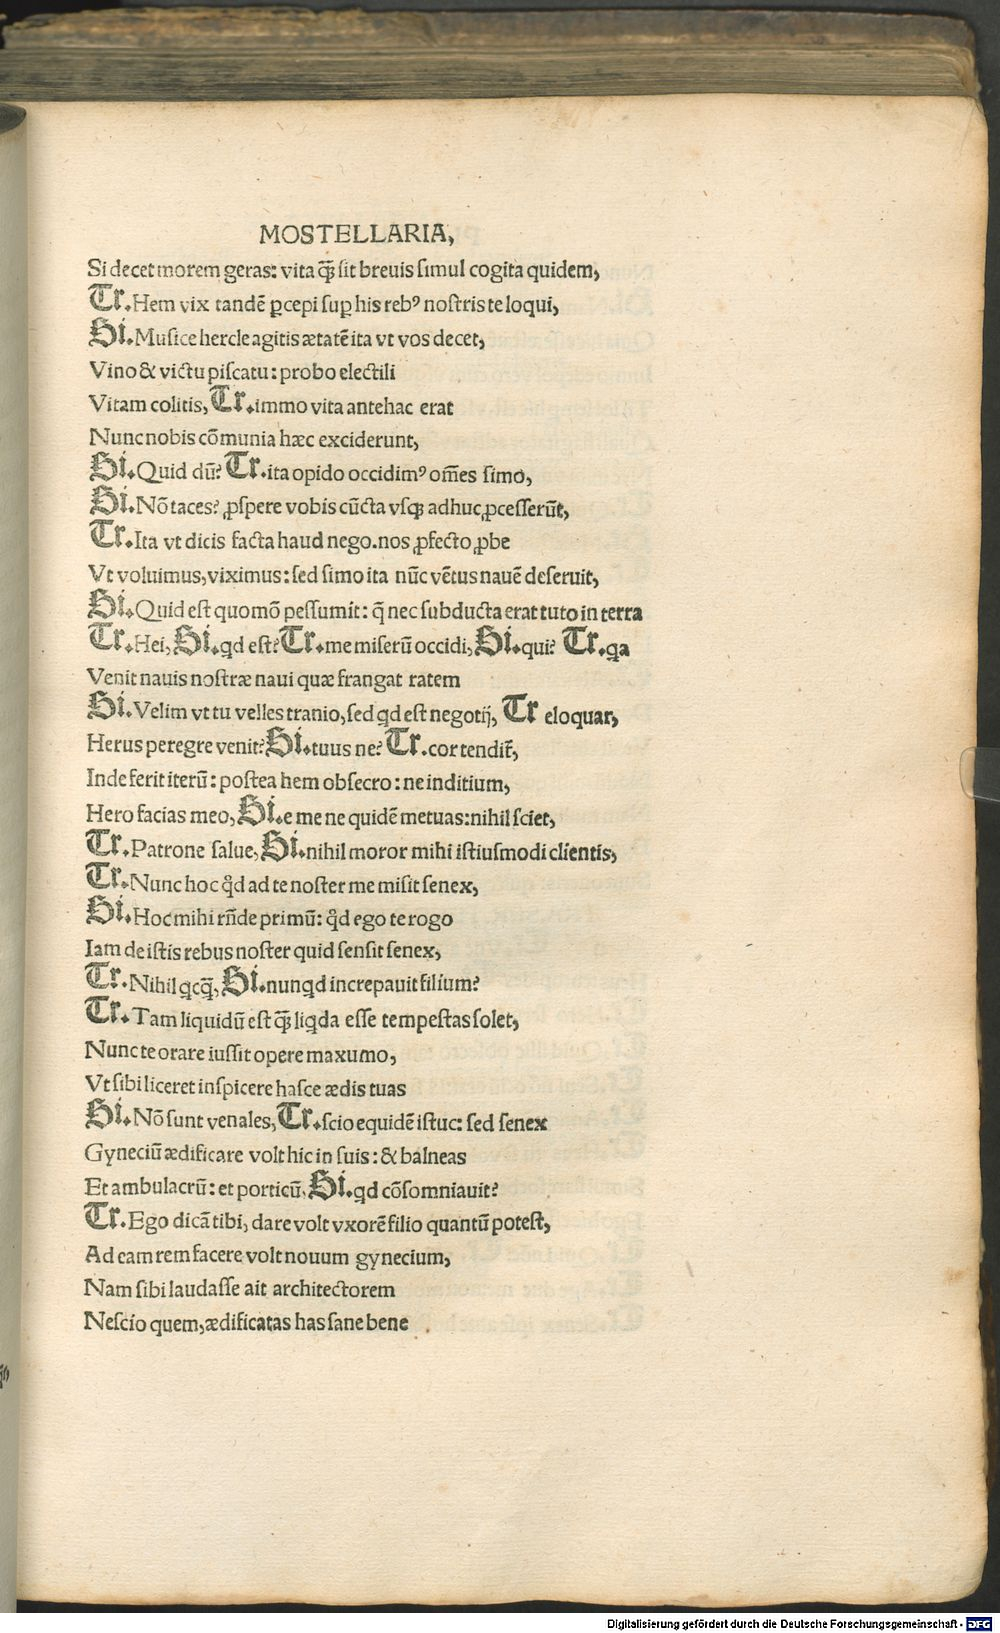 MOSTELLARIA,
Si decet morem geras: vita q̃ꝫ sit breuis simul cogita quidem,
Tr. Hem vix tandē ꝑcepi suꝑ his rebꝰ nostris te loqui,
Si. Musice hercle agitis ætatē ita vt vos decet,
Vino & victu piscatu: probo electili
Vitam colitis, Tr. immo vita antehac erat
Nunc nobis cōmunia hæc exciderunt,
Si. Quid dū? Tr. ita opido occidimꝰ om̄es simo,
Si. Nō taces? ꝓspere vobis cūcta vsqꝫ adhuc ꝓcesserūt,
Tr. Ita vt dicis facta haud nego. nos ꝓfecto ꝓbe
Vt voluimus, viximus: sed simo ita nūc vētus nauē deseruit,
Si. Quid est quomō pessumit: q̄ nec subducta erat tuto in terra
Tr. Hei, Si. qd est? Tr. me miserū occidi, Si. qui? Tr. qa
Venit nauis nostræ naui quæ frangat ratem
Si. Velim vt tu velles tranio, sed qd est negotij, Tr eloquar,
Herus peregre venit? Si. tuus ne? Tr. cor tendit̃,
Inde ferit iterū: postea hem obsecro: ne inditium,
Hero facias meo, Si. e me ne quidē metuas: nihil sciet,
Tr. Patrone salue, Si. nihil moror mihi istiusmodi clientis,
Tr. Nunc hoc q̊d ad te noster me misit senex,
Si. Hoc mihi rn̄de primū: q̊d ego te rogo
Iam de istis rebus noster quid sensit senex,
Tr. Nihil qcq̃, Si. nunqd increpauit filium?
Tr. Tam liquidū est q̃ꝫ liqda esse tempestas solet,
Nunc te orare iussit opere maxumo,
Vt sibi liceret inspicere hasce ædis tuas
Si. Nō sunt venales, Tr. scio equidē istuc: sed senex
Gyneciū ædificare volt hic in suis: & balneas
Et ambulacrū: et porticū, Si. qd cōsomniauit?
Tr. Ego dicā tibi, dare volt vxorē filio quantū potest,
Ad eam rem facere volt nouum gynecium,
Nam sibi laudasse ait architectorem
Nescio quem, ædificatas has sane bene
Digitalisierung gefördert durch die Deutsche Forschungsgemeinschaft - DFG